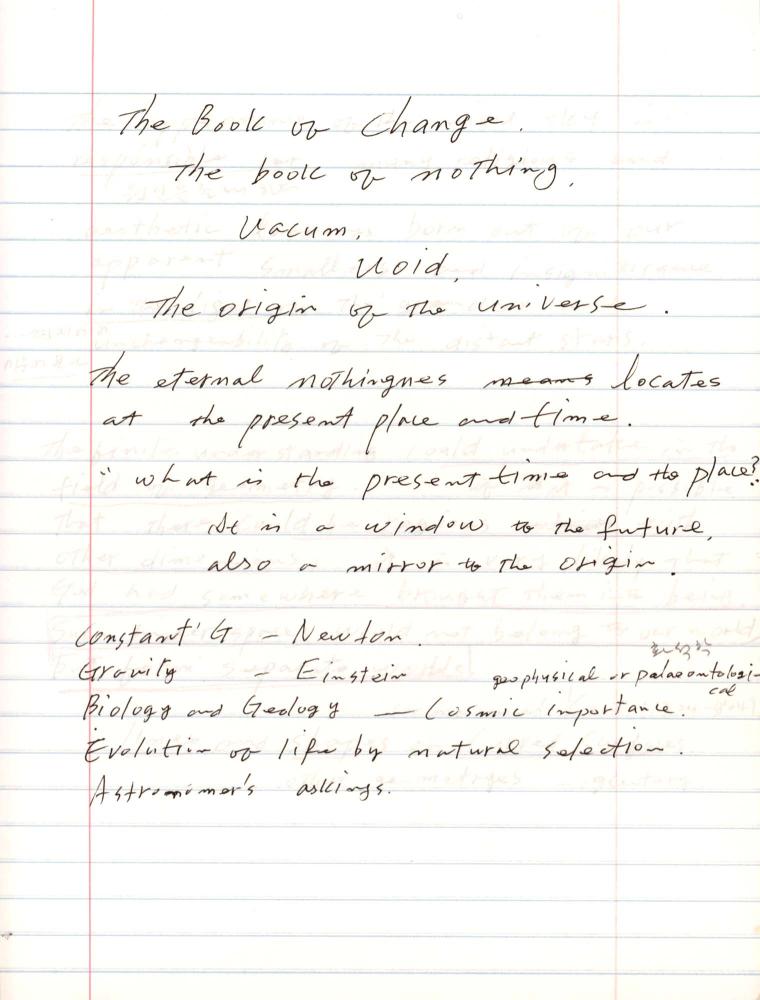 The Book of Change.
The book of nothing.
Vacum.
Void.
The origin of the universe.
The eternal nothingnes means locates
at the present place and time.
" what is the present time and the place?
It is a window to the future,
also a mirror to the origin.
Constant' G - Newton.
화석학
Gravity - Einstein geophysical or palaeontologi-
cal
Biology and Geology — Cosmic importance.
Evolution of life by natural selection.
Astronomer's askings.